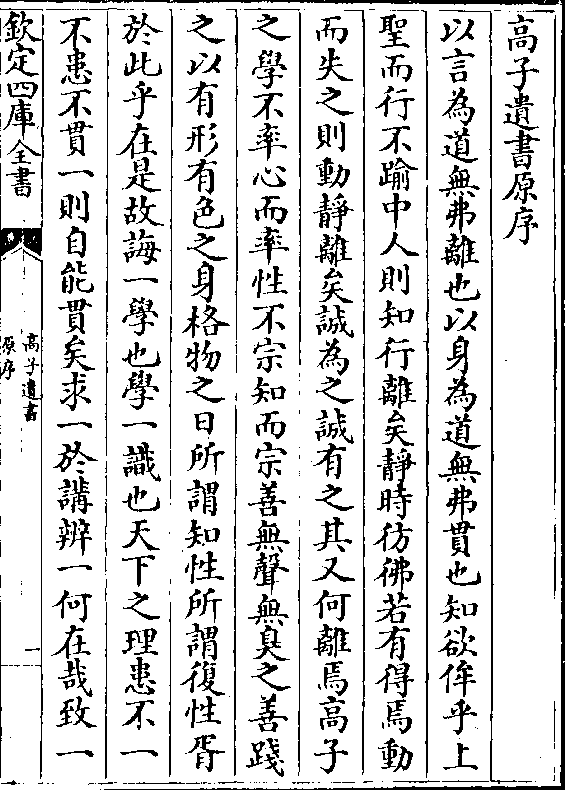 高子遺書原序
以言為道無弗離也以身為道無弗貫也知欲侔乎上
聖而行不踰中人則知行離矣靜時彷彿若有得焉動
而失之則動靜離矣誠為之誠有之其又何離焉高子
之學不率心而率性不宗知而宗善無聲無臭之善踐
之以有形有色之身格物之日所謂知性所謂復性胥
於此乎在是故誨一學也學一識也天下之理患不一
不患不貫一則自能貫矣求一於講辨一何在哉致一
欽定四庫全書
高子遺書
原序
一